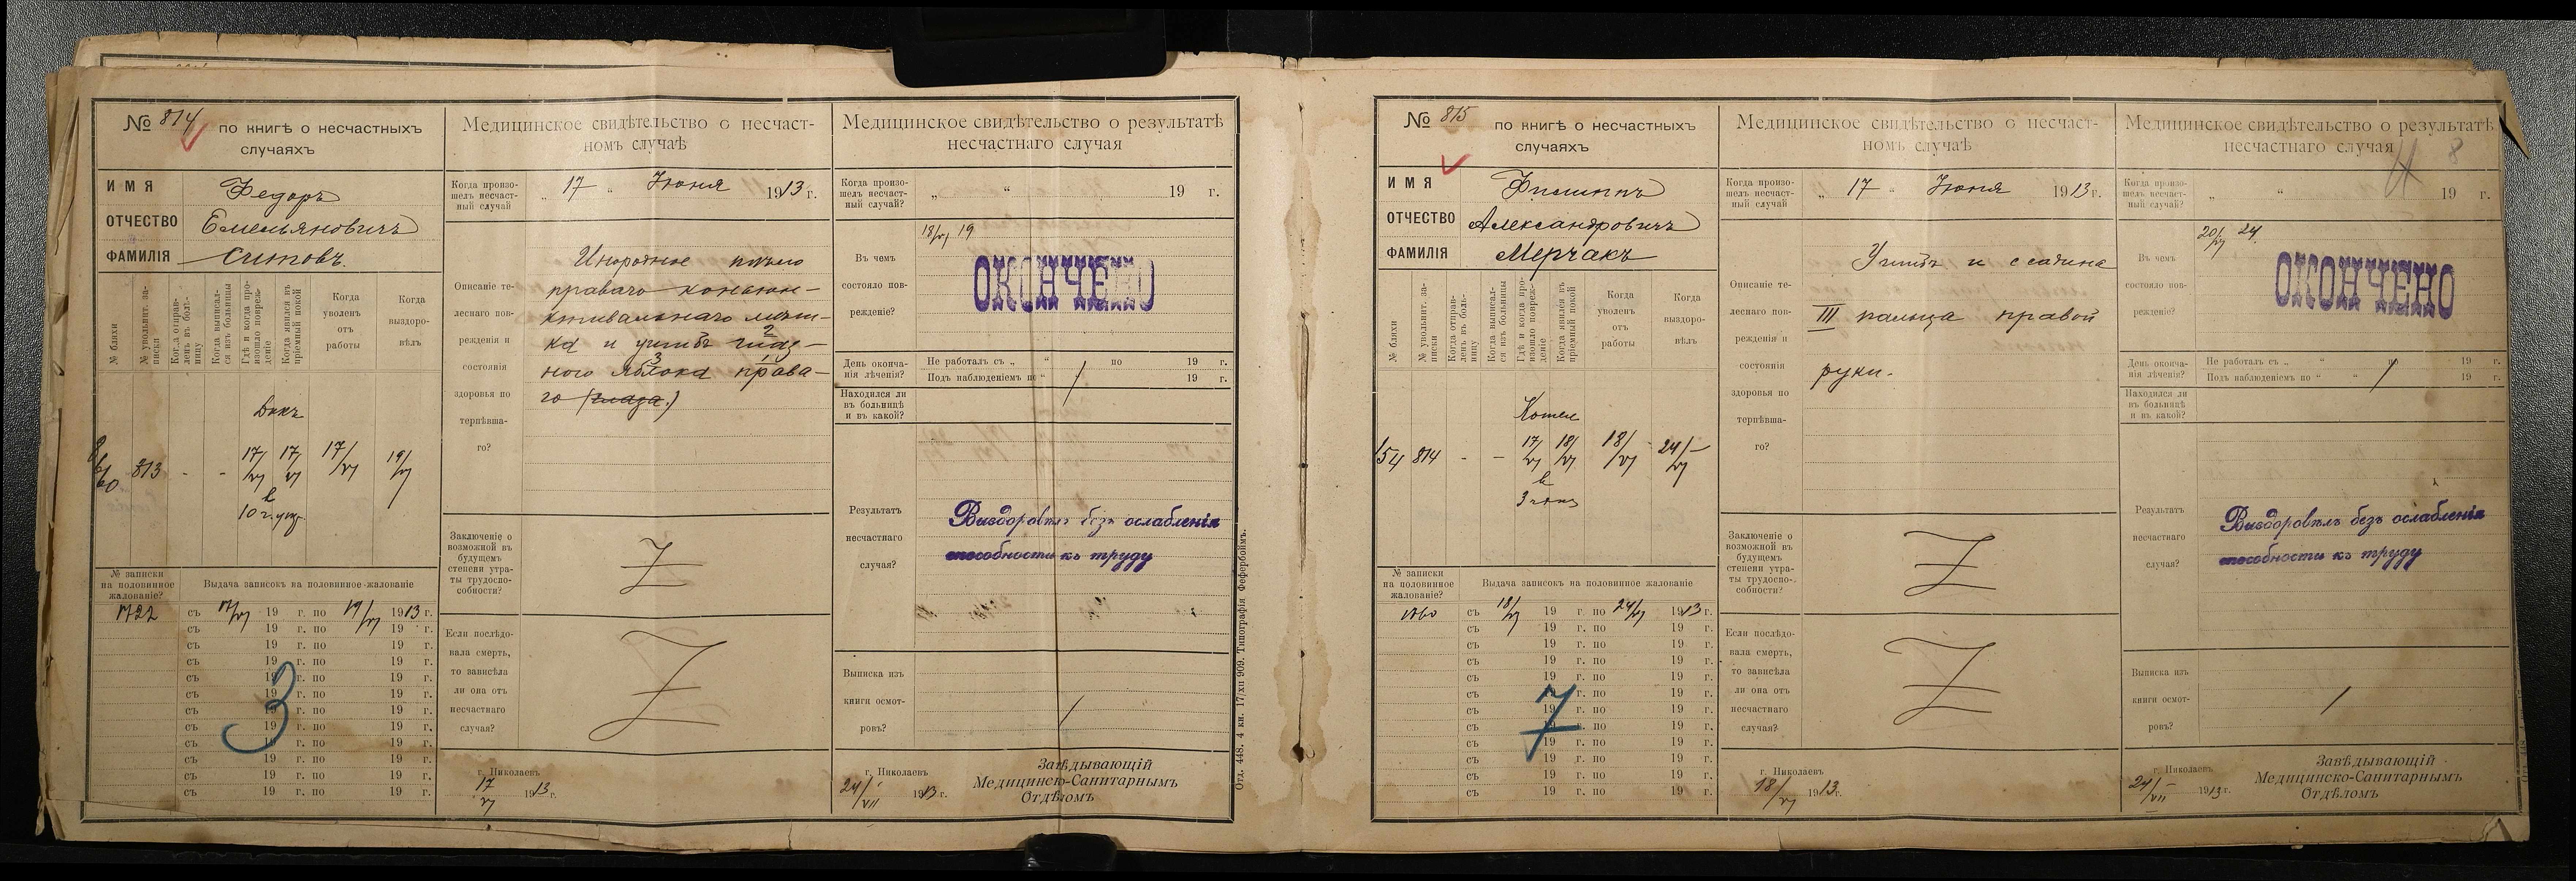 № 814 по книгѣ о несчастныхъ
случаяхъ
ИМЯ Федоръ
ОТЧЕСТВО Емельяновичъ
ФАМИЛІЯ Ситовъ.
№ бляхи
№ увольнит. записки
Когда отправленъ въ больницу
Когда выписался изъ больницы
Гдѣ и когда произошло поврежденіе
Когда явился въ пріемный покой
Когда
уволенъ
отъ
работы
Когда
выздоро-
вѣлъ
813 - - 17/VI 17/VI 17/VI 19/VI
в
№ записки
на половинное
жалованіе?
Выдача записокъ на половинное жалованіе
1722 съ 17/VI 19 г. по 19/VI 1913 г.
съ 19 г. по 19 г.
съ 19 г. по 19 г.
съ 19 г. по 19 г.
съ 19 г. по 19 г.
съ 19 г. по 19 г.
съ 19 г. по 19 г.
съ 19 г. по 19 г.
съ 19 г. по 19 г.
съ 19 г. по 19 г.
съ 19 г. по 19 г.
съ 19 г. по 19 г.
3
Медицинское свидѣтельство о несчаст-
номъ случаѣ
Когда произо-
шелъ несчаст-
ный случай
„ 17 “ Іюня 1913 г.
Описаніе те-
леснаго пов-
режденія и
состоянія
здоровья по
терпѣвша-
го?
Инородное тѣло
праваго конъюн-
ктивальнаго мѣш-
ка и ушибъ глаз-
ного яблока права-
го (глаза.)
Заключеніе о
возможной въ
будущемъ
степени утра-
ты трудоспо-
собности?
Если послѣдо-
вала смерть,
то зависѣла
ли она отъ
несчастнаго
случая?
г. Николаевъ
17/VI 1913 г.
Медицинское свидѣтельство о результатѣ
несчастнаго случая
Когда произо-
шелъ несчаст-
ный случай?
„ “ 19 г.
Въ чемъ
состояло пов-
режденіе?
18/VI 19
ОКОНЧЕНО
День оконча-
нія лѣченія?
Не работалъ съ „ “ по 19 г.
Подъ наблюденіемъ по “ 19 г.
Находился ли
въ больницѣ
и въ какой?
Результатъ
несчастнаго
случая?
Выздоровѣлъ безъ ослабленія
способности къ труду
Выписка изъ
книги осмот-
ровъ?
г. Николаевъ
24/VII 1913 г.
Завѣдывающій
Медицинско-Санитарнымъ
Отдѣломъ
Отд. 448. 4 кн. 17/xii 909. Типографія Фефербоймъ.
№ 815 по книгѣ о несчастныхъ
случаяхъ
ИМЯ Филиппъ
ОТЧЕСТВО Александровичъ
ФАМИЛІЯ Мерчакъ
№ бляхи
№ увольнит. записки
Когда отправленъ въ больницу
Когда выписался изъ больницы
Гдѣ и когда произошло поврежденіе
Когда явился въ пріемный покой
Когда
уволенъ
отъ
работы
Когда
выздоро-
вѣлъ
Котел
154 814 - - 17/VI 18/VI 18/VI 24/VI
в
№ записки
на половинное
жалованіе?
Выдача записокъ на половинное жалованіе
съ 18/VI 19 г. по 24/VI 1913 г.
съ 19 г. по 19 г.
съ 19 г. по 19 г.
съ 19 г. по 19 г.
съ 19 г. по 19 г.
съ 19 г. по 19 г.
съ 19 г. по 19 г.
съ 19 г. по 19 г.
съ 19 г. по 19 г.
съ 19 г. по 19 г.
съ 19 г. по 19 г.
съ 19 г. по 19 г.
7
Медицинское свидѣтельство о несчаст-
номъ случаѣ
Когда произо-
шелъ несчаст-
ный случай
„ 17 “ Іюня 1913 г.
Описаніе те-
леснаго пов-
режденія и
состоянія
здоровья по
терпѣвша-
го?
Ушибъ и ссадина
III пальца правой
руки.
Заключеніе о
возможной въ
будущемъ
степени утра-
ты трудоспо-
собности?
Если послѣдо-
вала смерть,
то зависѣла
ли она отъ
несчастнаго
случая?
г. Николаевъ
18/VI 1913 г.
Медицинское свидѣтельство о результатѣ
несчастнаго случая
8
Когда произо-
шелъ несчаст-
ный случай?
„ “ 19 г.
Въ чемъ
состояло пов-
режденіе?
20/VI 24.
ОКОНЧЕНО
День оконча-
нія лѣченія?
Не работалъ съ „ “ 19 г.
Подъ наблюденіемъ по “ “ 19 г.
Находился ли
въ больницѣ
и въ какой?
Результатъ
несчастнаго
случая?
Выздоровѣлъ безъ ослабленія
способности къ труду
Выписка изъ
книги осмот-
ровъ?
г. Николаевъ
24/VII 1913 г.
Завѣдывающій
Медицинско-Санитарнымъ
Отдѣломъ